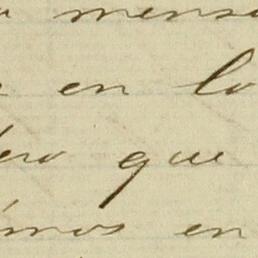 mens
en lo
ero que
imos en